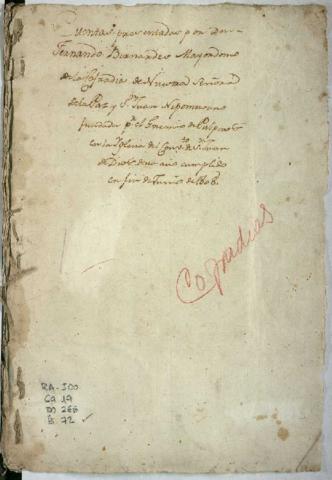 Cuentas presentadas por Don
Fernando Bernardes Mayordomo
de la Cofradia de Nuestra Señora
de la Paz y Sn. Juan Nepomuceno
fundada pr. el Gremio de
en la Yglesia del Convto. de Sn. Juan
de Dios, de un año cumplido
en fin de Junio de 1808.
Cofradias
RA-SOD
Ca 19
D) 266
f: 72